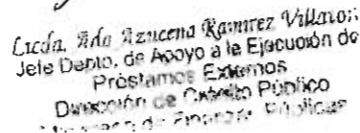 Licda. Ada Azucena Ramírez Villator
Jefe Depto. de Apoyo a la Ejecución de
Préstamos Externos
Dirección de Crédito Público
de Finanzas Públicas